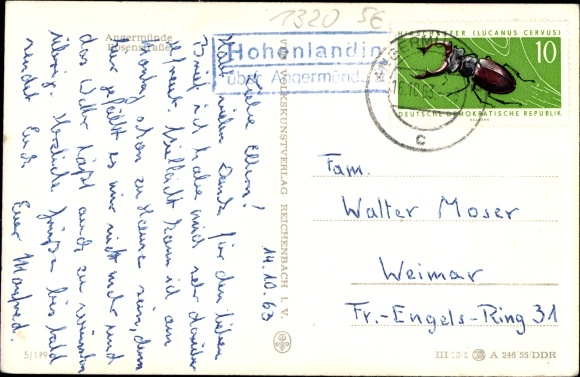 1320 56
Angermünde
Rosenstraße
Hohenlandin
über Angermünde
HIRSCHKÄFER (LUCANUS CERVUS)
10
DEUTSCHE DEMOKRATISCHE REPUBLIK
c
14.10.63
Liebe Eltern!
Habt vielen Dank für den lieben
Brief ich habe mich sehr darüber
gefreut. Vielleicht kann ich am
Montag schon zu Hause sein, denn
hier gefällt es mir nicht mehr und
das Wetter läßt auch zu wünschen
übrig. Herzliche Grüße bis bald
sendet Euch
Euer Manfred.
VOLKSKUNSTVERLAG REICHENBACH I. V.
Fam.
Walter Moser
Weimar
Fr.-Engels-Ring 31
5/199
A 246/55/DDR